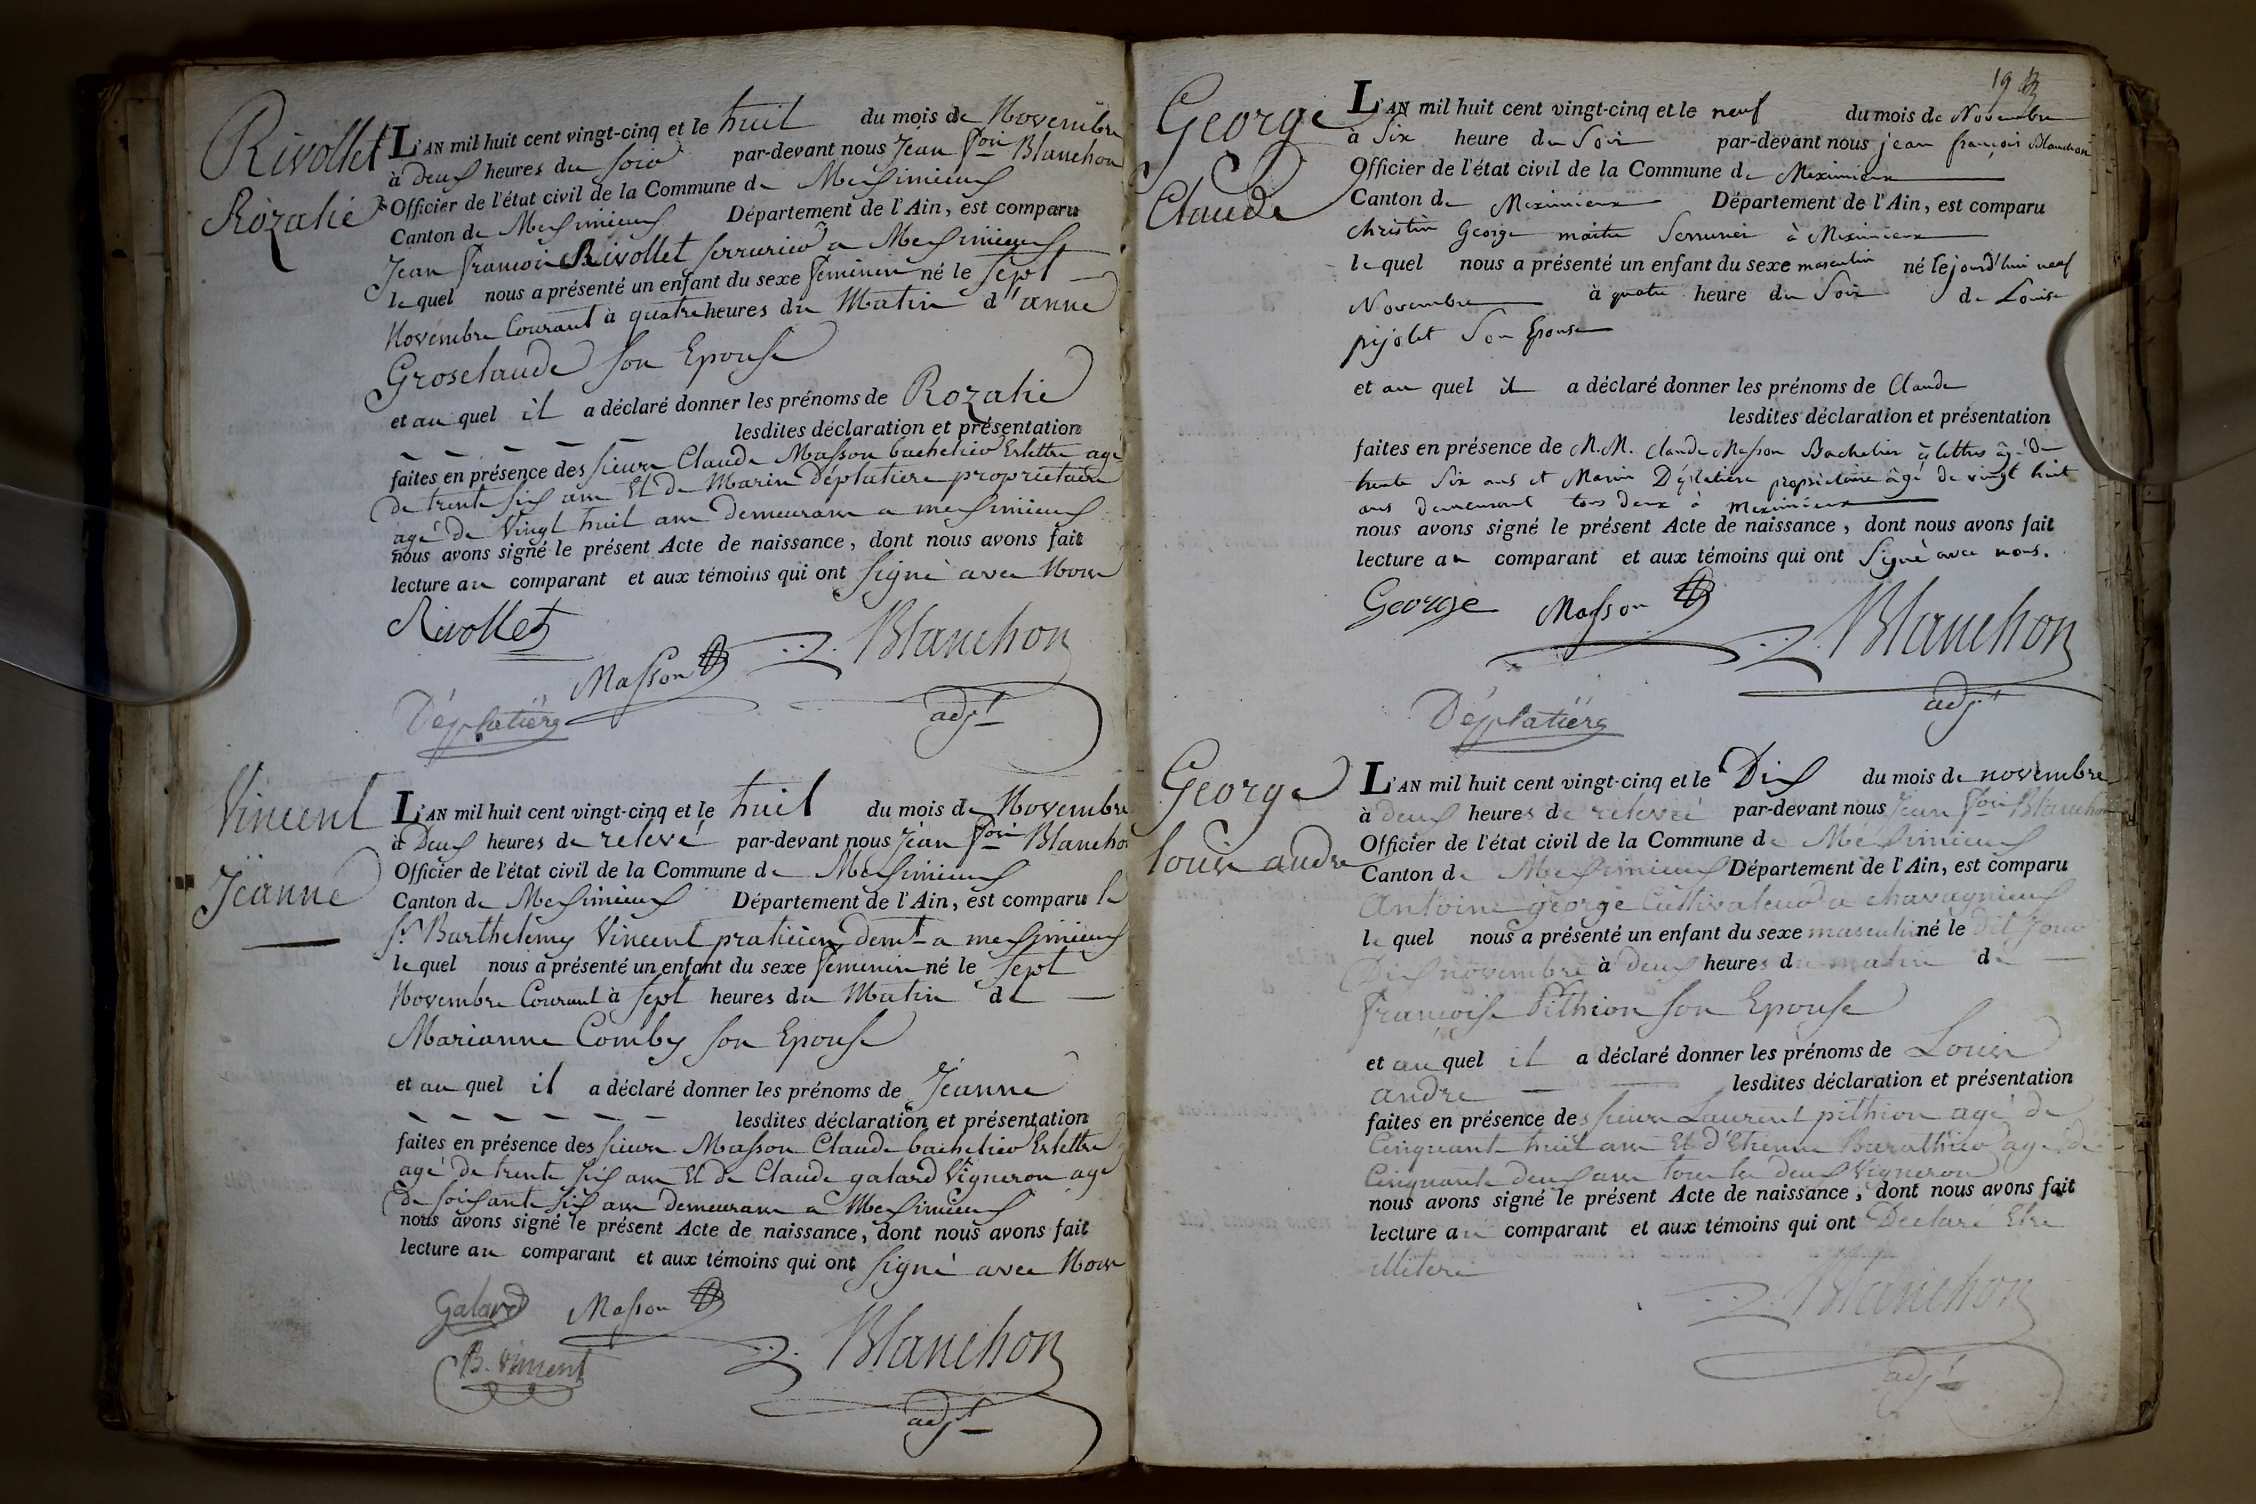 Rivollet
Rozalie
L'AN mil huit cent vingt-cinq et le huit du mois de Novembre
à Deux heures du soir par-devant nous Jean fçois Blanchon
Officier de l'état civil de la Commune de Meximieux
Canton de Meximieux Département de l'Ain, est comparu
Jean françois Rivollet serrurier a Meximieux
le quel nous a présenté un enfant du sexe feminin né le sept
Novembre Courant à quatre heures du Matin d'anne
Groselaude son Epouse
et au quel il a déclaré donner les prénoms de Rozalie
lesdites déclaration et présentation
faites en présence des sieurs Claude Masson bachelier Eslettre agé
de trente six ans Et de Marin Déplatiere propriétaire
agé de Vingt huit ans demeurans a meximieux
nous avons signé le présent Acte de naissance, dont nous avons fait
lecture au comparant et aux témoins qui ont signé avec Nous
Rivollet
Masson Blanchon
Déplatière adjt
Vincent
Jeanne
L'AN mil huit cent vingt-cinq et le huit du mois de Novembre
à Deux heures de relevé par-devant nous Jean fçois Blanchon
Officier de l'état civil de la Commune de Meximieux
Canton de Meximieux Département de l'Ain, est comparu le
sr Barthelemy Vincent praticien demt a meximieux
le quel nous a présenté un enfant du sexe feminin né le sept
Novembre Courant à sept heures du Matin de
Marianne Comby son Epouse
et au quel il a déclaré donner les prénoms de Jeanne
lesdites déclaration et présentation
faites en présence des sieurs Masson Claude bachelier Eslettre
agé de trente six ans Et de Claude galard Vigneron agé
de soixante six ans demeurans a Meximieux
nous avons signé le présent Acte de naissance, dont nous avons fait
lecture au comparant et aux témoins qui ont signé avec Nous
Galard Masson Blanchon
B. Vincent
adjt
19
George
Claude
L'AN mil huit cent vingt-cinq et le neuf du mois de Novembre
à Six heure du Soir par-devant nous jean françois Blanchon
Officier de l'état civil de la Commune de Meximieux
Canton de Meximieux Département de l'Ain, est comparu
christin George maitre Serrurier à Meximieux
le quel nous a présenté un enfant du sexe masculin né lejourd'hui neuf
Novembre à quatre heure du Soir de Louise
pijolet Son Epouse
et au quel il a déclaré donner les prénoms de Claude
lesdites déclaration et présentation
faites en présence de M.M. Claude Masson Bachelier ès lettres âgé de
trente Six ans et Marin Déplatière propriétaire âgé de vingt huit
ans demeurant tous deux à Meximieux
nous avons signé le présent Acte de naissance, dont nous avons fait
lecture au comparant et aux témoins qui ont Signé avec nous.
George Masson Blanchon
Déplatière adjt
George
louis andre
L'AN mil huit cent vingt-cinq et le Dix du mois de novembre
à deux heures de relevée par-devant nous Jean fçois Blanchon
Officier de l'état civil de la Commune de Meximieux
Canton de Meximieux Département de l'Ain, est comparu
Antoine george Cultivateur a chavagnieux
le quel nous a présenté un enfant du sexe masculin né le dit jour
Dix novembre à deux heures du matin de
françoise Pithion son Epouse
et au quel il a déclaré donner les prénoms de Louis
andre lesdites déclaration et présentation
faites en présence des sieurs Laurent pithion agé de
Cinquante huit ans Et d'Etienne Barathier agé de
Cinquante deux ans tous les deux Vigneron
nous avons signé le présent Acte de naissance, dont nous avons fait
lecture au comparant et aux témoins qui ont Declaré Etre
illitere
Blanchon
adjt